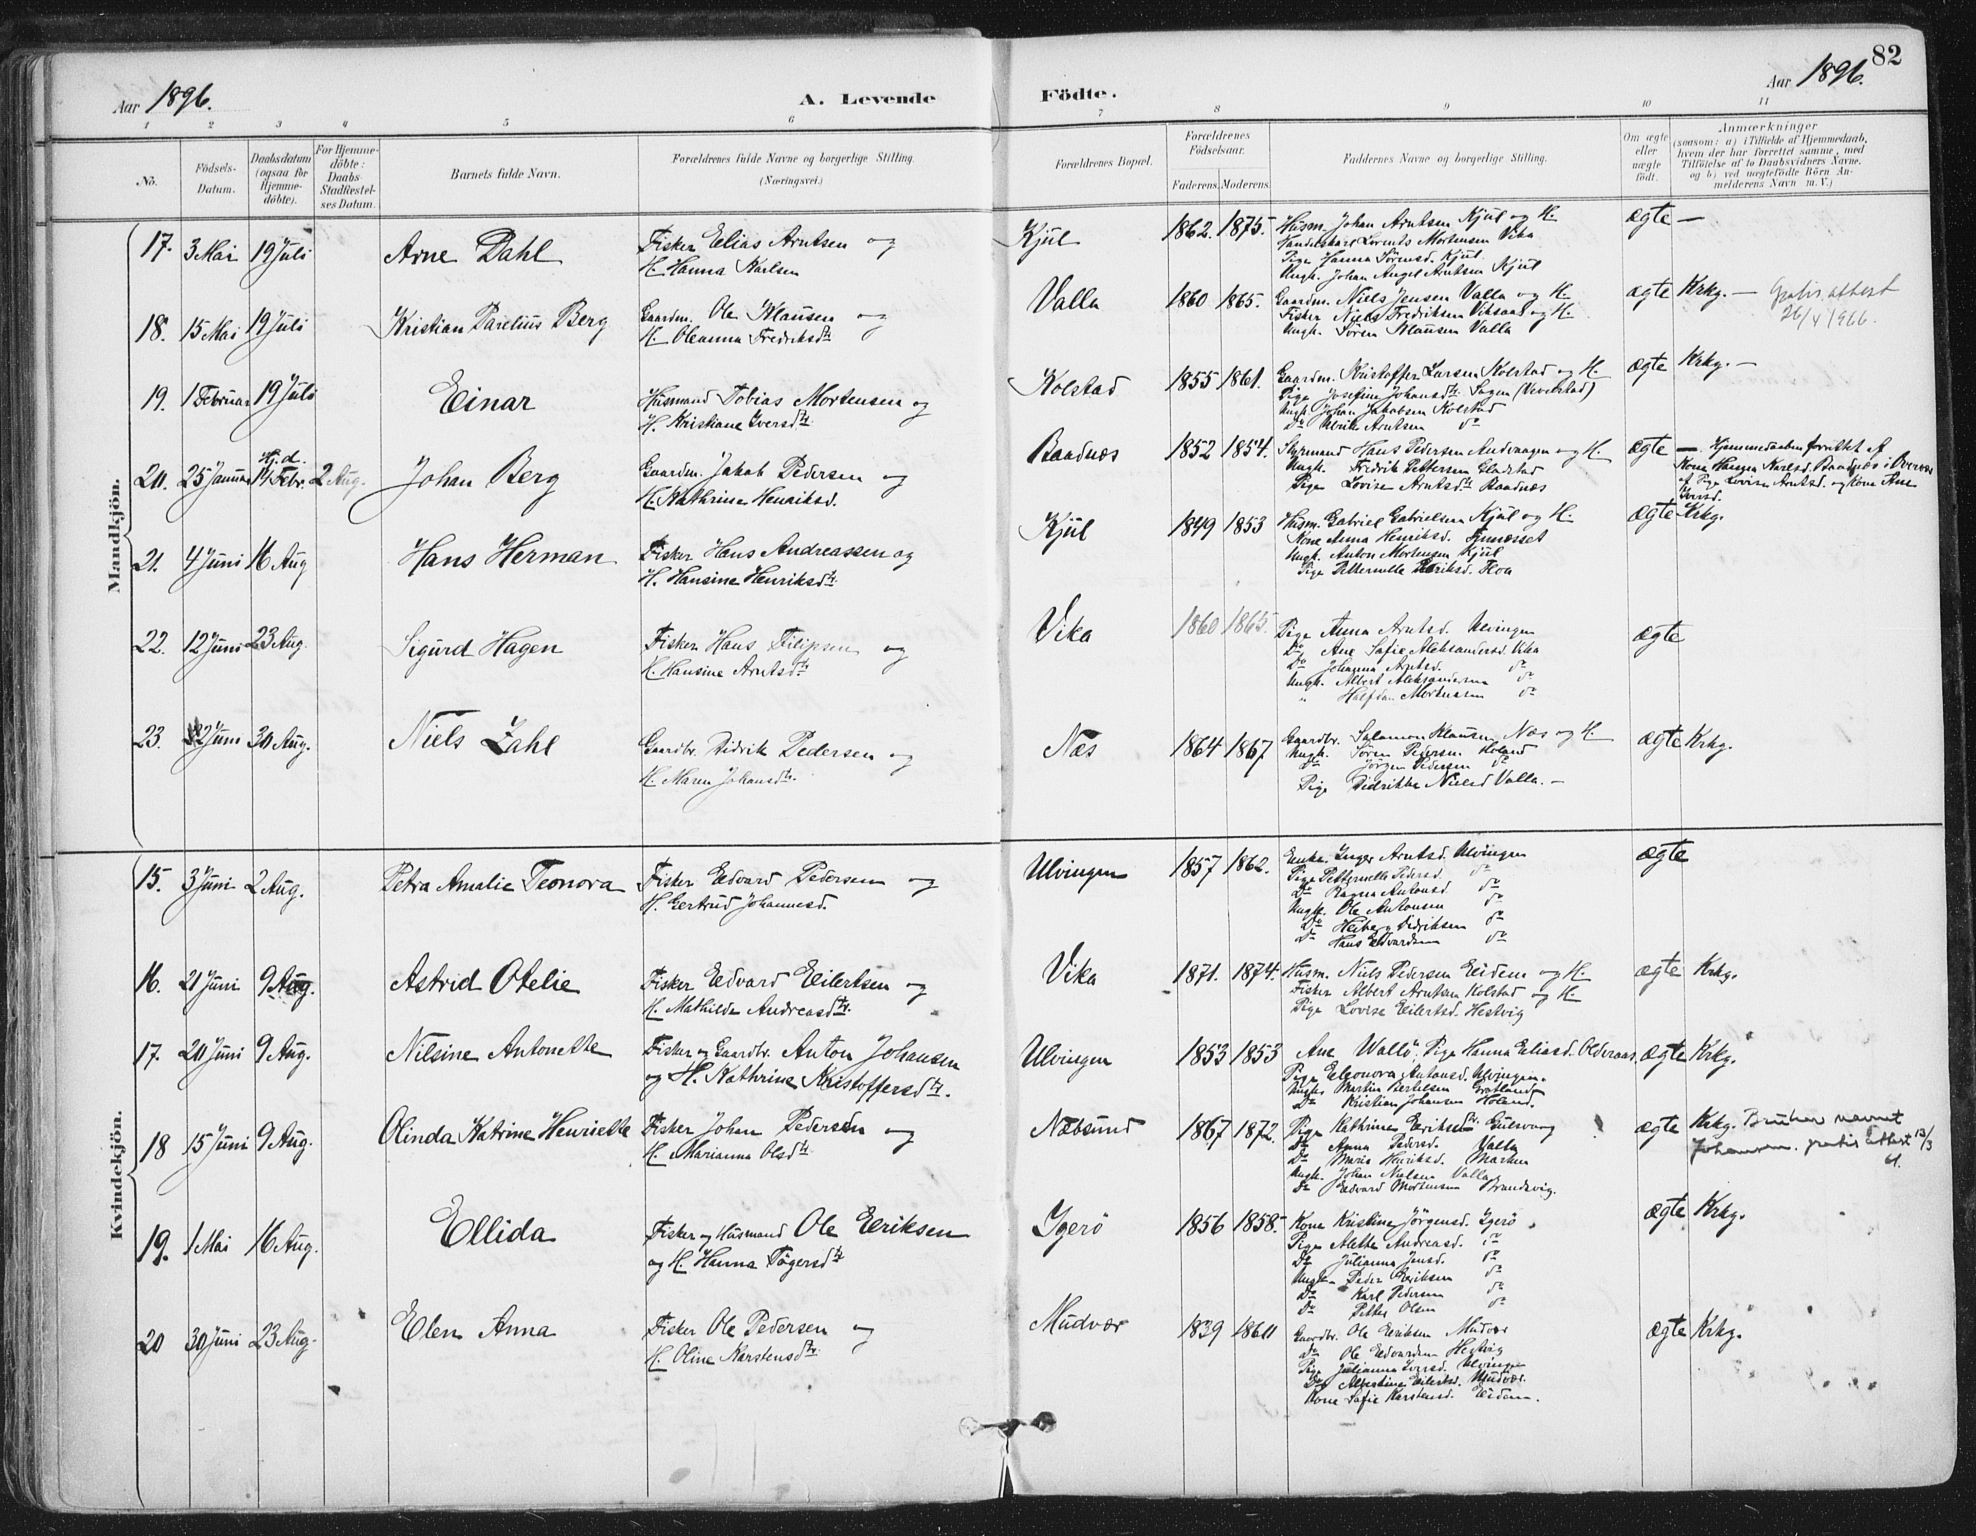 82
Aar 1896.
A. Levende Födte.
Aar 1896.
1 2 3 4 5 6 7 8 9 10 11
No.
Födsels-Datum.
Daabsdatum (ogsaa for Hjemmedöbte).
For Hjemmedöbte: Daabs-Stadfestelses Datum.
Barnets fulde Navn.
Forældrenes fulde Navne og borgerlige Stilling. (Næringsvei.)
Forældrenes Bopæl.
Forældrenes Födselsaar.
Faderens. Moderens.
Faddernes Navne og borgerlige Stilling.
Om ægte eller uægte födt.
Anmærkninger
(saasom: a) i Tilfælde af Hjemmedaab, hvem der har forrettet samme, med Tilföielse af to Daabsvidners Navne. og b) ved uægtefödte Börn Anmelderens Navn m. V.)
Mandkjön.
17. 3 Mai 19 Juli Arne Dahl Fisker Elias Arntsen og
H. Hanna Karlsen
Kjul 1862. 1875. Husm. Johan Arntsen Kjul og H.
Lorents Mortensen Vika
Pige Hanna Sörensd. Kjul.
Ungk. Johan Angel Arntsen Kjul
ægte —
18. 15 Mai 19 Juli Kristian Parelius Berg Gaardm. Ole Klausen og
H. Oleanna Fredriksdtr
Valla 1860 1865. Gaardm. Niels Jensen Valla og H.
Fisker Niels Fredriksen Viksaas og H.
Ungk. Sören Klausen Valla
ægte Krkg. — Gratis attest
26/4 1966.
19. 1 Februar 19 Juli Einar Husmand Tobias Mortensen og
H. Kristiane Iversdtr
Kolstad 1855 1861. Gaardm. Kristoffer Larsen Kolstad og H.
Pige Josefine Johansdtr. Sagen (Vevelstad)
Ungk. Johan Jakobsen Kolstad
Do Ulrik Arntsen do
ægte Krkg. —
20. 25 Januar Hj.d. 14 Febr. 2 Aug. Johan Berg Gaardm. Jakob Pedersen og
H. Kathrine Henriksd.
Baadnæs 1852 1854. Styrmand Hans Pedersen og H.
Ungk. Fredrik Pettersen Gladstad
Pige Lovise Arntsdtr Baadnæs
ægte — Hjemmedaaben forrettet af
Kone Karlsd. Baadnæs i Overvær
af Pige Lovise Arntsd. og Kone Ane
Iversd.
21. 4 Juni 16 Aug Hans Herman Fisker Hans Andreassen og
H. Hansine Henriksdtr.
Kjul 1849 1853 Husm. Gabriel Gabrielsen Kjul og H.
Kone Anna Henriksd. Finnæsset
Ungk. Anton Mortensen Kjul
Pige Petternelle Eriksd. Floa
ægte Krkg.
22. 12 Juni 23 Aug. Sigurd Hagen Fisker Hans Filipsen og
H. Hansine Arntsdtr
Vika 1860 1865. Pige Anna Arntsd. Ulvingen
Do Ane Sofie Aleksandersd. Vika
Do Johanna Arntsd. do
Ungk. Albert Aleksandersen do
" Halfdan Mortensen do
ægte
23. 12 Juni 30 Aug. Niels Zahl Gaardbr. Didrik Pedersen og
H. Maren Johansdtr.
Næs 1864 1867 Gaardbr. Salamon Klausen Næs og H.
Ungk. Sören Pedersen Holand
Do Jörgen Pedersen do
Pige Didrikke Nielsd Valla. —
ægte Krkg.
Kvindekjön.
15. 3 Juni 2 Aug. Petra Amalie Teonora Fisker Edvard Pedersen og
H. Gertrud Johannesd.
Ulvingen 1857 1862. Enke Inger Arntsd. Ulvingen
Pige Petternelle Pedersd. do
Do Ragna Antonsd do
Ungk. Ole Antonsen do
Do Heiberg Didriksen do
Do Hans Edvardsen do
ægte
16. 21 Juni 9 Aug. Astrid Otelie Fisker Edvard Eilertsen og
H. Mathilde Andreasdtr.
Vika 1871. 1874. Husm. Niels Pedersen Eidem og H.
Fisker Albert Arntsen Kolstad og H.
Pige Lovise Eilertsd. Hestvig
ægte Krkg.
17. 20 Juni 9 Aug. Nilsine Antonette Fisker og Gaardbr. Anton Johansen
og H. Kathrine Kristoffersdtr.
Ulvingen 1853 1853 Ane Wallö, Pige Hanna Eliasd. Olderaas.
Pige Eleonora Antonsd. Ulvingen.
Ungk. Martin Bertelsen Grötland
Do Kristian Johansen Holand.
ægte Krkg.
18 15 Juni 9 Aug. Olinda Katrine Henriette Fisker Johan Pedersen og
H. Marianna Olsdtr.
Næbsund 1867 1872. Pige Kathrine Eriksdtr. Gulsvaag
Do Anna Pedersd. Valla
Do Marie Henriksd. Marken
Ungk. Johan Nielsen Valla
Do Edvard Mortensen Brandsvig.
ægte Krkg. Bruker navnet
Johansen. gratis attest 13/3
61.
19. 1 Mai 16 Aug. Ellida Fisker og Husmand Ole Eriksen
og H. Hanna Tögersdtr
Igerö 1856 1858. Kone Kristine Jörgensd. Igerö
Pige Alette Andreasd. do
Do Julianna Jensd. do
Ungk. Peder Eriksen do
Do Karl Pedersen do
Do Petter Olsen do
ægte Krkg.
20 30 Juni 23 Aug. Elen Anna Fisker Ole Pedersen og
H. Oline Karstensdtr.
Mudvær 1839 1860 Gaardbr. Ole Eriksen Mudvær
Do Ole Edvardsen Hestvig
Pige Julianna Iversd. Ulvingen
Do Albertine Eilertsd. Mudvær.
Kone Sofie Karstensd. Eidem.
ægte Krkg.